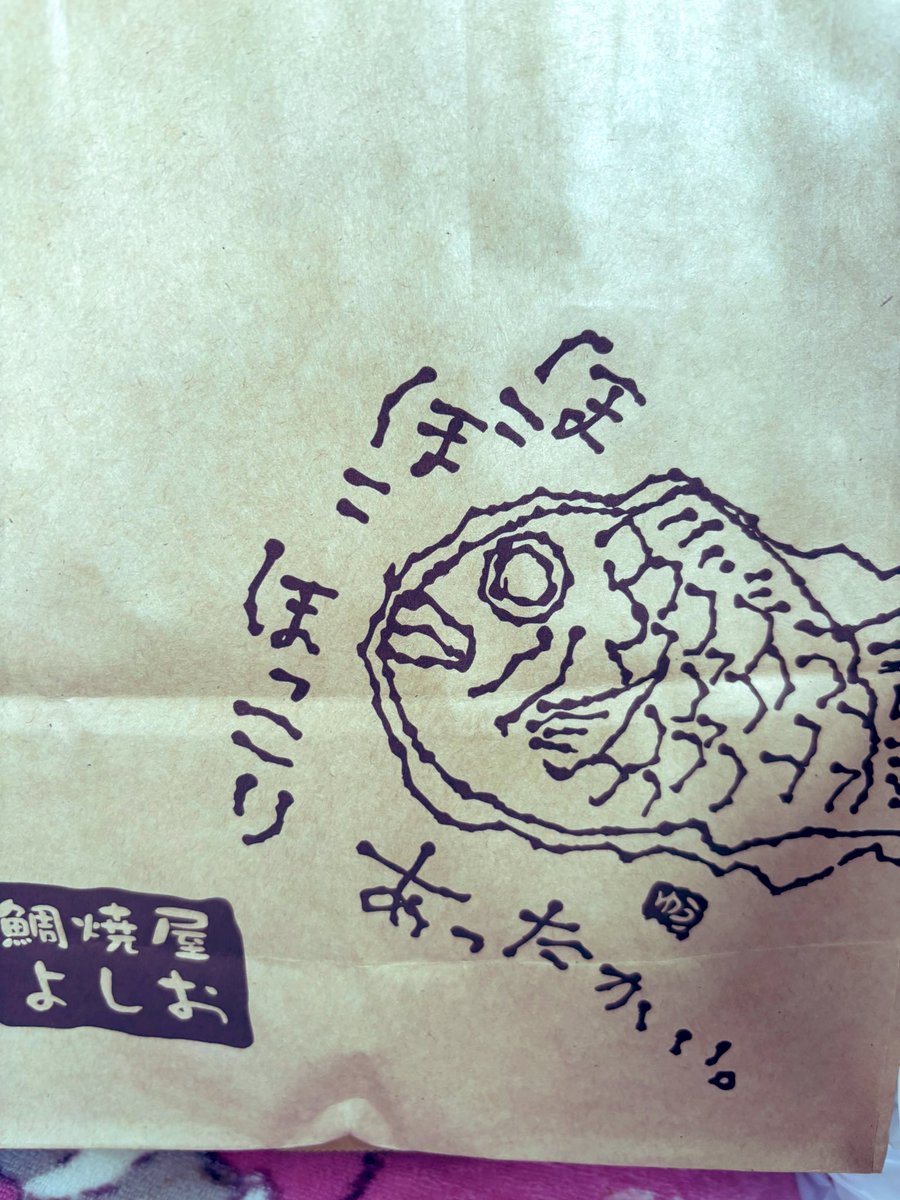 ほこほこ
ほっこり
あったかーい。
鯛焼屋
よしお